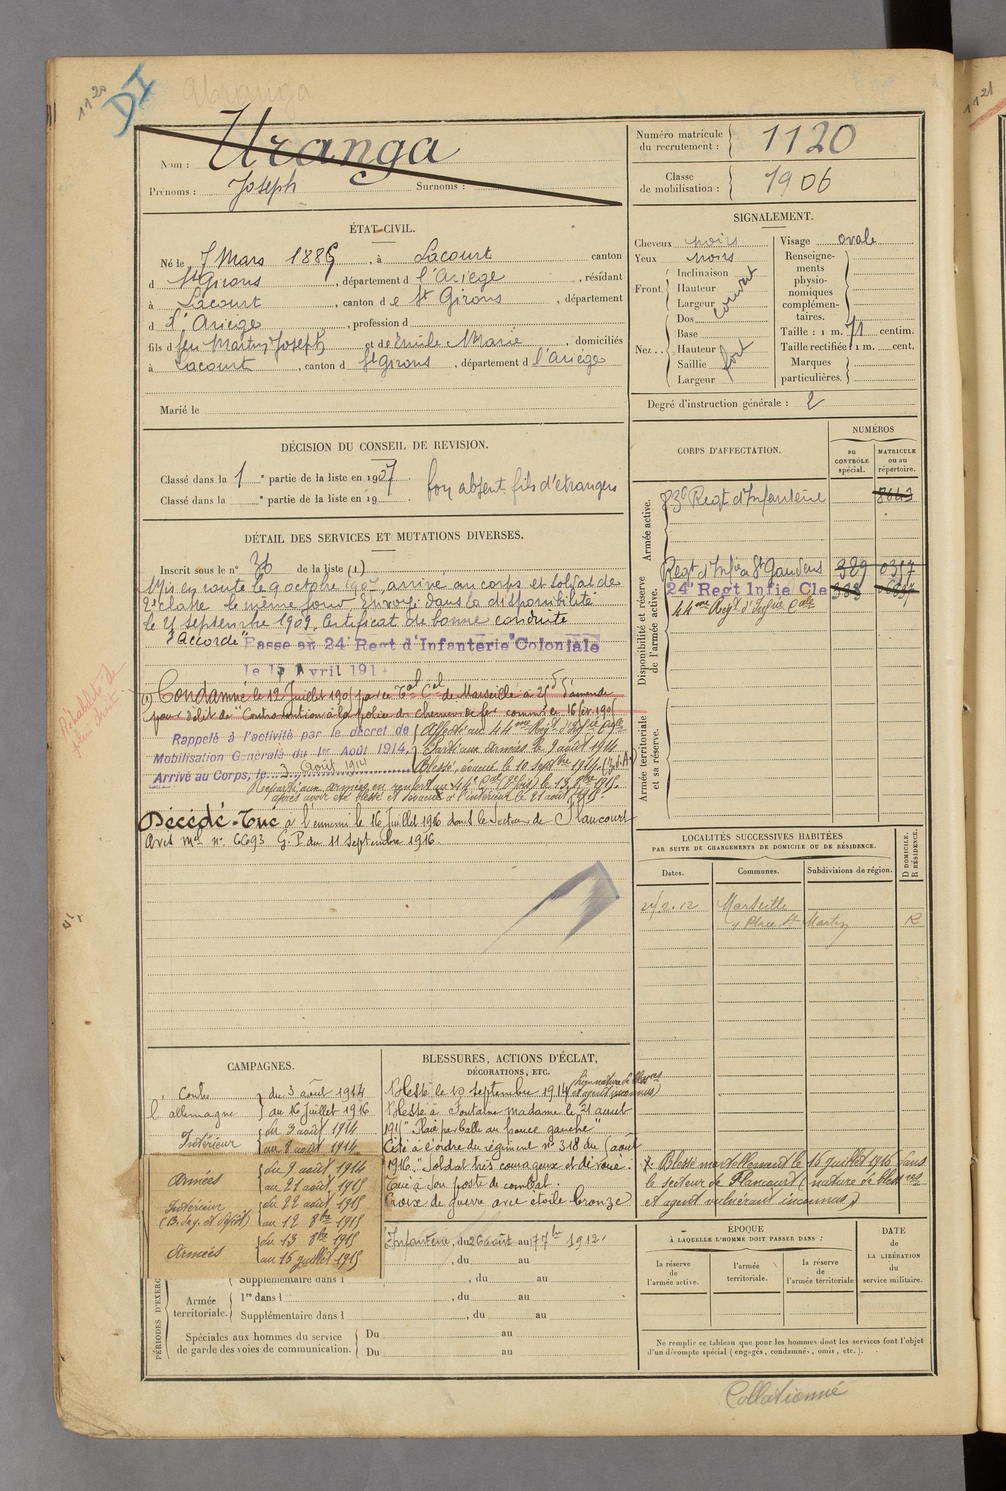 1120
DI
Nom : Uranga
Prénoms : Joseph Surnoms :
Numéro matricule du recrutement : 1120
Classe de mobilisation : 1906
ÉTAT-CIVIL.
Né le 7 Mars 1886, à Lacourt canton
d St Girons, département d l'Ariège, résidant
à Lacourt, canton d e St Girons, département
d l'Ariège, profession d
fils d feu Martin Joseph et de Emile Marie, domiciliés
à Lacourt, canton d St Girons, département d l'Ariège
Marié le
SIGNALEMENT.
Cheveux noirs
Yeux noirs
Front. Inclinaison
Hauteur
Largeur
couvert
Nez.. Dos
Base
Hauteur
Saillie
Largeur
fort
Visage ovale
Renseignements physionomiques complémentaires.
Taille : 1 m. 71 centim.
Taille rectifiée 1 m. cent.
Marques particulières.
Degré d'instruction générale : 2
DÉCISION DU CONSEIL DE REVISION.
Classé dans la 1e partie de la liste en 1907 bon absent fils d'étrangers
Classé dans la e partie de la liste en 19
DÉTAIL DES SERVICES ET MUTATIONS DIVERSES.
Inscrit sous le n° 36 de la liste (1)
Mis en route le 9 octobre 1907, arrivé au corps et soldat de
2e classe le même jour. Envoyé dans la disponibilité
le 21 septembre 1909. Certificat de bonne conduite
"Accordé" Passe au 24e Regt d'Infanterie Coloniale
le 15 Avril 191
(1) Condamné le 12 Juillet 190 par le Tal Cel de Marseille à 25f d'amende
pour délit de "Contravention à la police du chemin de fer commis en 16 fév. 190
Réhabilité de plein droit
Rappelé à l'activité par le décret de
Mobilisation Générale du 1er Août 1914.
Arrivé au Corps, le 3 Août 1914
Affecté au 44me Regt d'Infie Colle
Parti aux armées le 9 août 1914
Blessé, évacué le 10 Septbre 1914.
Reparti aux armées en renfort au 44e Cal le 13 8bre 1915.
après avoir été blessé et évacué à l'intérieur le 21 août 1915.
Décédé - Tué à l'ennemi le 16 juillet 1916 dans le Secteur de Flaucourt
Avis mel n°. CC93 G.P. du 11 Septembre 1916.
CORPS D'AFFECTATION.
NUMÉROS
au CONTRÔLE spécial.
MATRICULE ou au répertoire.
Armée active.
83e Regt d'Infanterie 8643
Disponibilité et réserve de l'armée active.
Regt d'Infie St Gaudens 389 0357
24e Regt Infie Cle
44me Regt d'Infie Cole
Armée territoriale et sa réserve.
LOCALITÉS SUCCESSIVES HABITÉES
PAR SUITE DE CHANGEMENTS DE DOMICILE OU DE RÉSIDENCE.
D DOMICILE. R RÉSIDENCE.
Dates. Communes. Subdivisions de région.
21/2.12 Marseille
1 Place St Martin R
CAMPAGNES.
Contre l'allemagne du 3 août 1914
au 16 juillet 1916
Intérieur du 3 août 1914
au 8 août 1914
Armées du 9 août 1914
au 21 août 1915
Intérieur du 22 août 1915
au 12 8bre 1915
Armées du 13 8bre 1915
au 16 juillet 1915
BLESSURES, ACTIONS D'ÉCLAT,
DÉCORATIONS, ETC.
Blessé le 10 septembre 1914 (lieu nature de bless res et agent inconnus)
Blessé à Fontaine madame le 21 aout
1915 "Plaie par balle au pouce gauche"
Cité à l'ordre du régiment n° 318 du août
1916. "Soldat très courageux et dévoué.
Tué à son poste de combat.
Croix de guerre avec étoile bronze
* Blessé mortellement le 16 juillet 1916 dans
le secteur de Flaucourt (nature de bless res
et agent vulnérant inconnus)
PÉRIODES D'EXERC
Infanterie, du 26 août au 17 7bre 1912.
, du au
Supplémentaire dans l , du au
Armée territoriale. 1re dans l , du au
Supplémentaire dans l , du au
Spéciales aux hommes du service de garde des voies de communication. Du au
Du au
ÉPOQUE
À LAQUELLE L'HOMME DOIT PASSER DANS :
la réserve de l'armée active.
l'armée territoriale.
la réserve de l'armée territoriale
DATE DE LA LIBÉRATION du service militaire.
Ne remplir ce tableau que pour les hommes dont les services font l'objet
d'un décompte spécial (engagés, condamnés, omis, etc.).
Collationné
1121